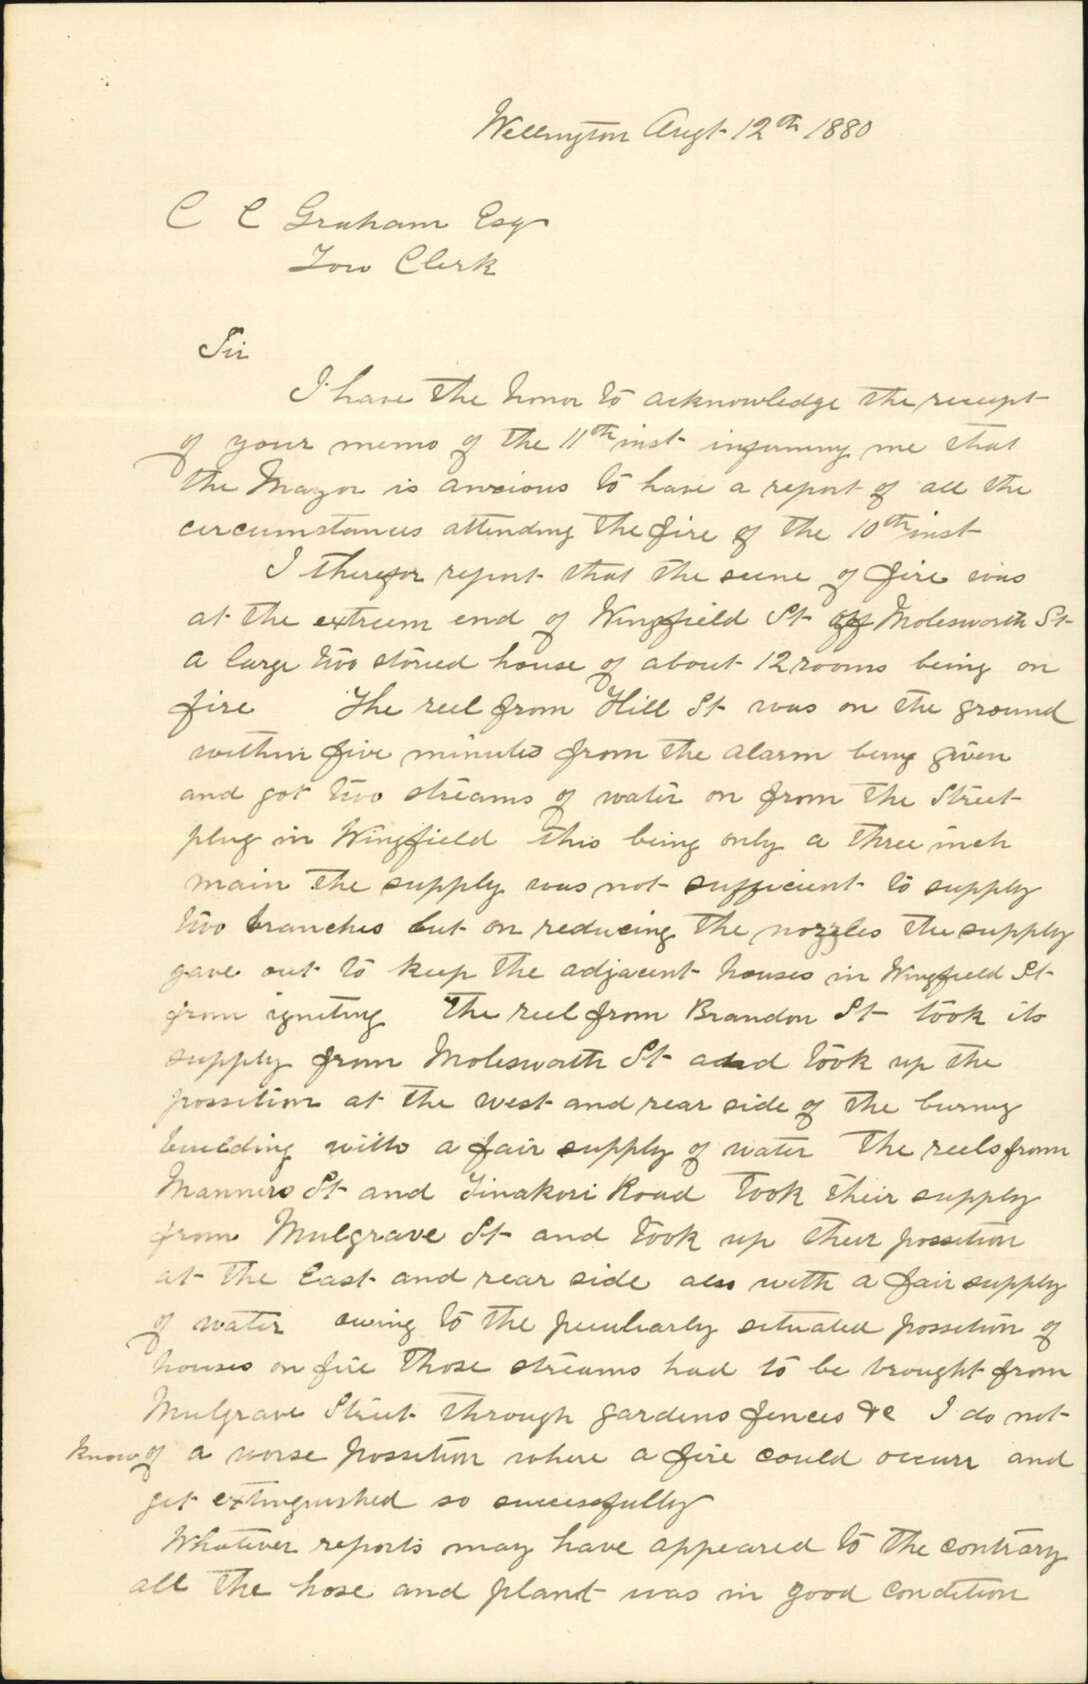 Wellington Augt 12th 1880
C C Graham Esq
Tow Clerk
Sir
I have the honor to acknowledge the receipt
of your memo of the 11th inst informing me that
the Mayor is anxious to have a report of all the
circumstances attending the fire of the 10th inst
I therefor report that the scene of fire was
at the extreem end of Wingfield St off Molesworth St
a large two storied house of about 12 rooms being on
fire The reel from Hill St was on the ground
within five minutes from the alarm being given
and got two streams of water on from the Street
plug in Wingfield this being only a three inch
main the supply was not sufficient to supply
two branches but on reducing the nozzles the supply
gave out to keep the adjacent houses in Wingfield St
from igniting The reel from Brandon St took its
supply from Molesworth St and took up the
possition at the west and rear side of the burning
building with a fair supply of water The reels from
Manners St and Tinakori Road took their supply
from Mulgrave St and took up their possition
at the East and rear side also with a fair supply
of water owing to the peculiarly situated possition of
houses on fire those streams had to be brought from
Mulgrave Street through gardens fences &c I do not
know of a worse possition where a fire could occurr and
get extinguished so successfully
Whatever reports may have appeared to the contrary
all the hose and plant was in good condition